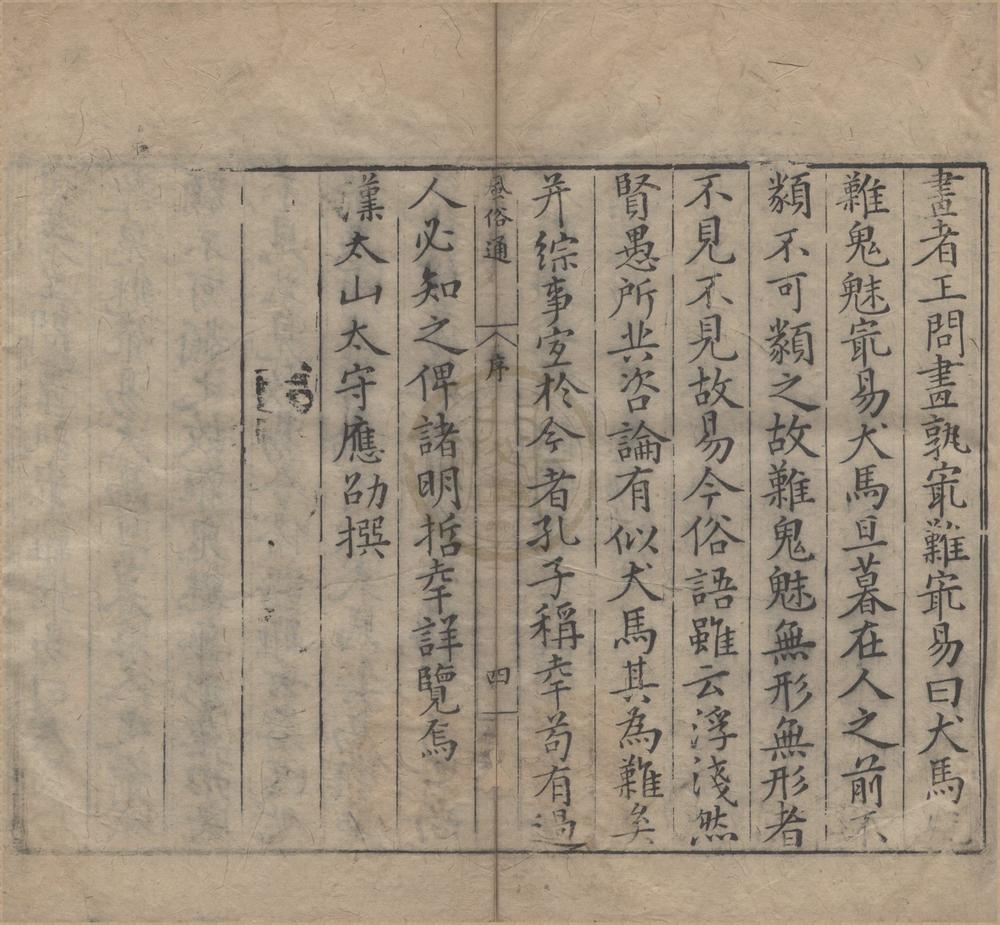 畫者王問畫孰㝡難㝡易曰犬馬
難鬼魅㝡易犬馬旦暮在人之前不
類不可類之故難鬼魅無形無形者
不見不見故易今俗語雖云浮淺然
賢愚所共咨論有似犬馬其為難矣
并綜事宜於今者孔子稱幸苟有過
風俗通 序 四
人必知之俾諸明哲幸詳覽焉
漢太山太守應劭撰